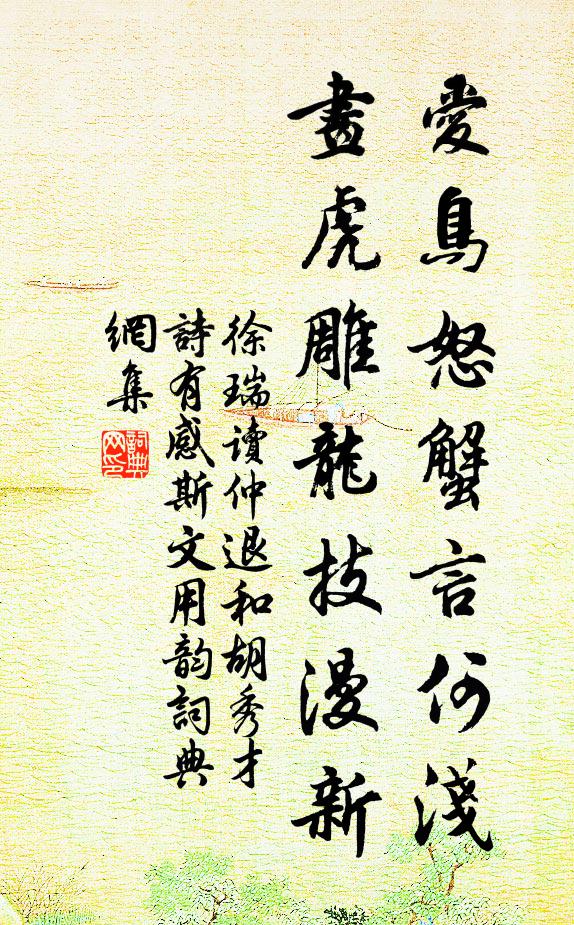 愛鳥怒蟹言何淺
畫虎雕龍技漫新
徐瑞讀仲退和胡秀才
詩有感斯文用韵詞典
網集
詞典网印